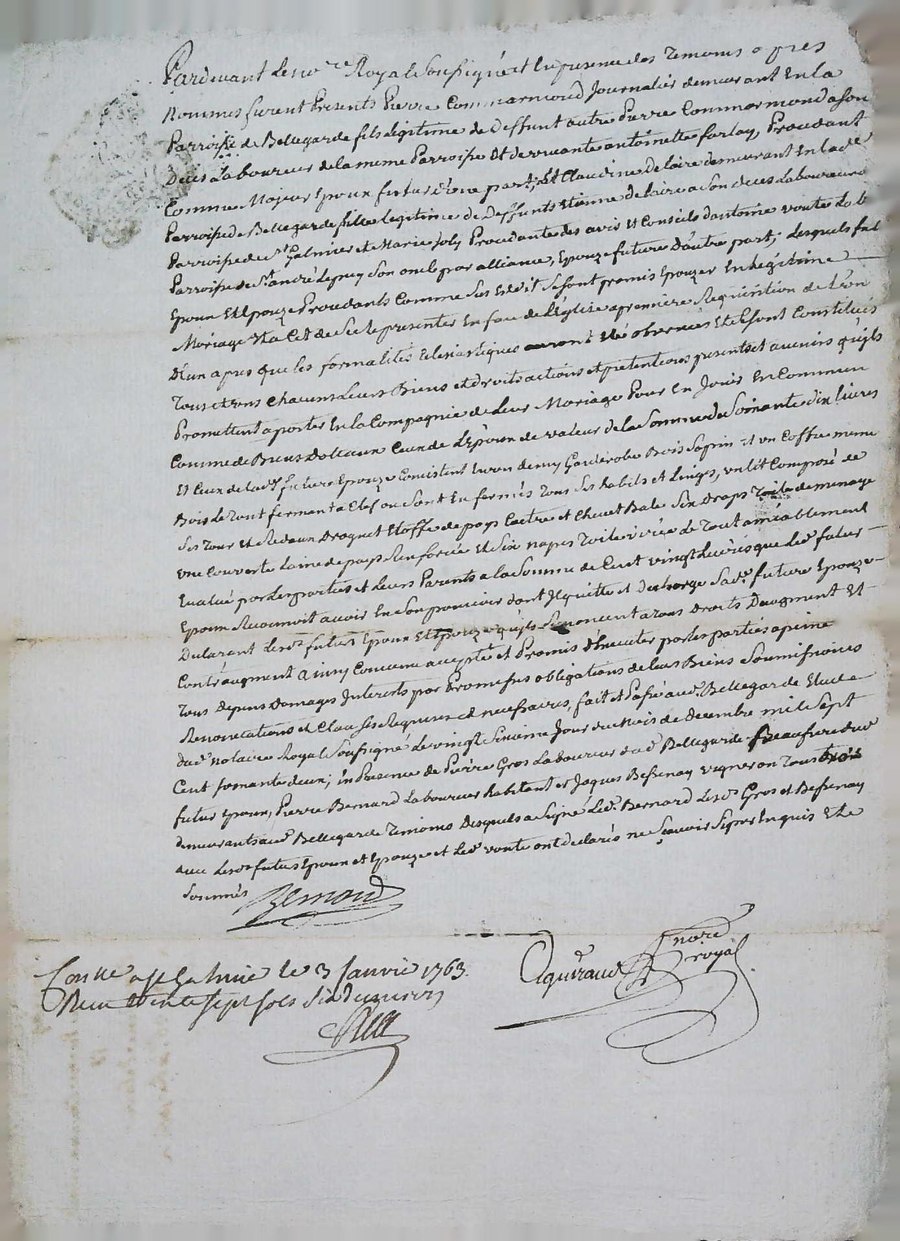 Pardevant le no.re Royal Soussigné et En presence des Temoins apres
Nommes furent Presents Pierre Commarmond Journalier demeurant En la
Parroisse de Bellegarde fils legitime de deffunt autre Pierre Commarmond a son
Deces Laboureur de la meme Parroisse Et de vivante antoinette farlay, Procedant
Comme Majeur Epoux futur d'une part; Et Claudine Delaire demeurant En lad.e
Parroisse de Bellegarde fille legitime de Deffunts Etienne delaire a Son deces Laboureur
Parroisse de S.t Galmier et de Marie Joly Procedante des avis et Conseils d'antoine voute Lab.
Parroisse de S.t andré Lepuy Son oncle par alliance, Epouze future D'autre part; lesquels fut.
Epoux Et Epouze Procedants Comme Sus Est dit Se sont promis Epouzer En legitime
Mariage Et a Cet effet de Se Representer En face de L'Eglise a premiere Requisition de L'un
D'eux apres que les formalites Eclesiastiques auront Eté observées Et Se sont Constitués
Tous et uns Chacuns Leurs Biens et droits actions et pretentions presents et avenirs qu'ils
Promettent aporter En la Compagnie de Leur Mariage Pour En Jouir En Commun
Comme de Biens Dotaux Ceux de L'Epoux de valeur de la Somme de Soixante dix livres
Et Ceux de lad.e future Epouze Consistent En un demy Garderobe Bois Sapin et un Coffre meme
Bois le tout fermant a Clef ou Sont Enfermés Tous Ses habits et Linges, un lit Composé de
Ses Tour et Rideaux Droguet Etoffe de pays Coetre et Chevet Bale Six Draps Toile de menage
une Couverte Laine de pays Renforcée Et Six napes Toile de Tout amiablement
Evalué par les parties et leurs Parents a la Somme de Cent vingt livres que led. futur
Epoux Reconnoit avoir En Son pouvoir dont Il quitte et decharge Sad.e future Epouze
Declarant lesd. futurs Epoux Et Epouze qu'ils Renoncent a tous Droits D'augment Et
Contraugment ainsy Convenu accepté et Promis D'Executer par les parties a peine
Tous Depens Domages Interests par Promesses obligations de leurs Biens Soumissions
Renonciations et Clauses Requises et necessaires, fait et Passé aud. Bellegarde Etude
dud. Notaire Royal Soussigné Le vingt Sixieme Jour du Mois de decembre mil Sept
Cent Soixante deux; En Presence de Pierre Gros Laboureur dud. Bellegarde Beaufrere dud.
futur Epoux, Pierre Bernard Laboureur habitant et Jaques Bessenay vigneron Tous trois
demeurants aud. Bellegarde Temoins Desquels a Signé led. Bernard Lesd. Gros et Bessenay
avec Lesd. futurs Epoux et Epouze et led. voute ont declarés ne Sçavoir Signer Enquis Et de
Sommés
Bernard
Aguiraud no.re royal
Con.lle a S.t Galmie le 3 Janvie 1763.
Recu Sept Sols Six deniers